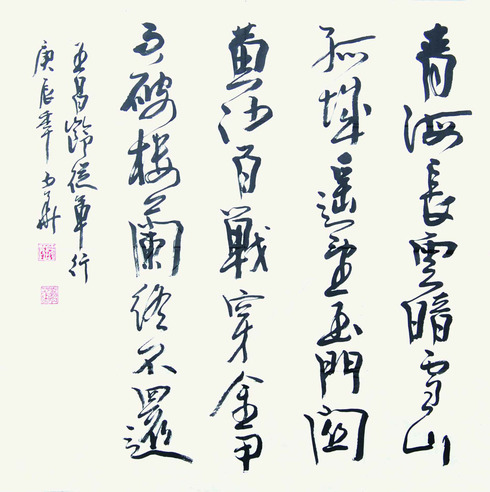 青海長雲暗雪山
孤城遥望玉門關
黄沙百戰穿金甲
不破樓蘭終不還
王昌齡從軍行
庚辰